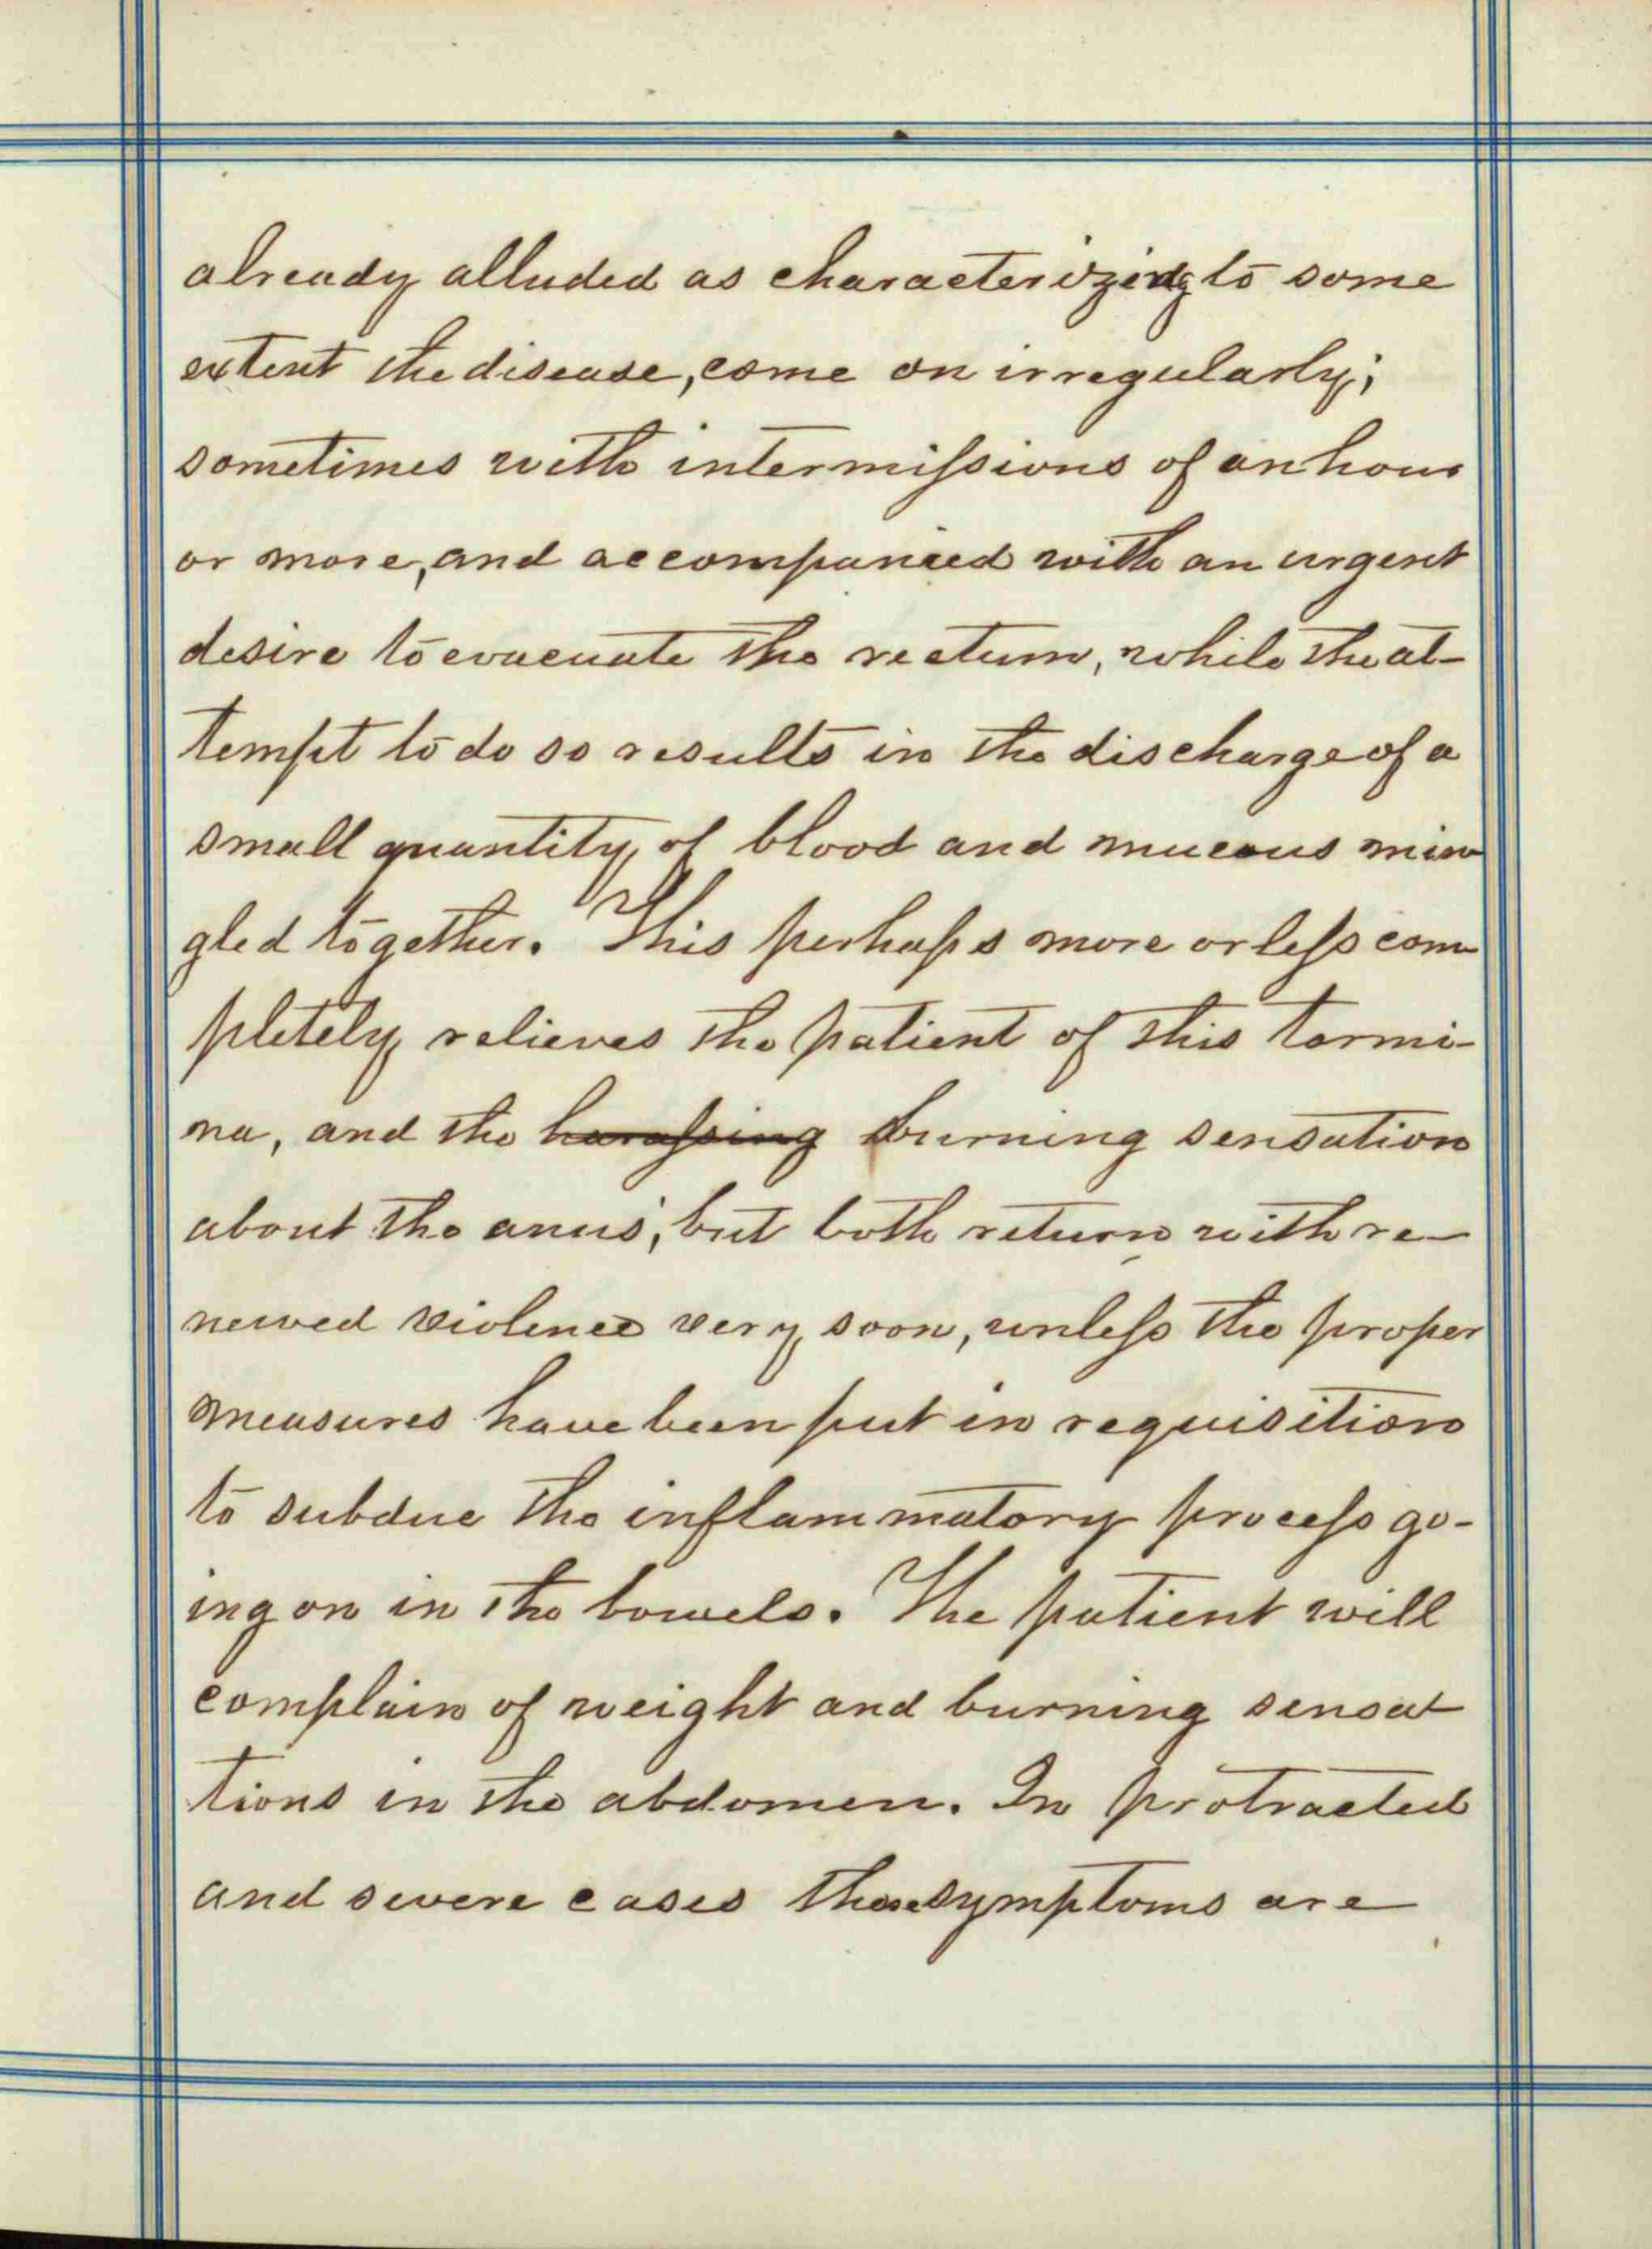 already alluded as characterizing to some
extent the disease, come on irregularly;
sometimes with intermissions of an hour
or more, and accompanied with an urgent
desire to evacuate the rectum, while the at-
tempt to do so results in the discharge of a
small quantity of blood and mucous min
gled together. This perhaps more or less com
pletely relieves the patient of this tormi-
na, and the harassing burning sensation
about the anus; but both return with re-
newed violence very soon, unless the proper
measures have been put in requisition
to subdue the inflammatory process go-
ing on in the bowels. The patient will
complain of weight and burning sensat
tions in the abdomen. In protracted
and severe cases these symptoms are